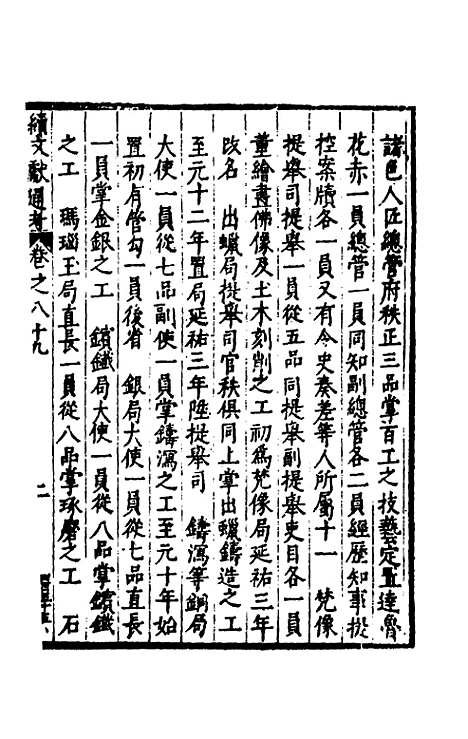 諸色人匠總管府秩正三品掌百工之技藝定置達魯
花赤一員總管一員同知副總管各二員經歷知事提
控案牘各一員又有令史奏差等人所屬十一　梵像
提舉司提舉一員從五品同提舉副提舉吏目各一員
董繪畫佛像及土木刻削之工初為梵像局延祐三年
改名　出蠟局提舉司官秩俱同上掌出蠟鑄造之工
至元十二年置局延祐三年陞提舉司　鑄瀉等銅局
大使一員從七品副使一員掌鑄瀉之工至元十年始
置初有管勾一員後省　銀局大使一員從七品直長
一員掌金銀之工　鑌鐵局大使一員從八品掌鑌鐵
之工　瑪瑙玉局直長一員從八品掌琢磨之工　石
續文獻通考　卷之八十九　二